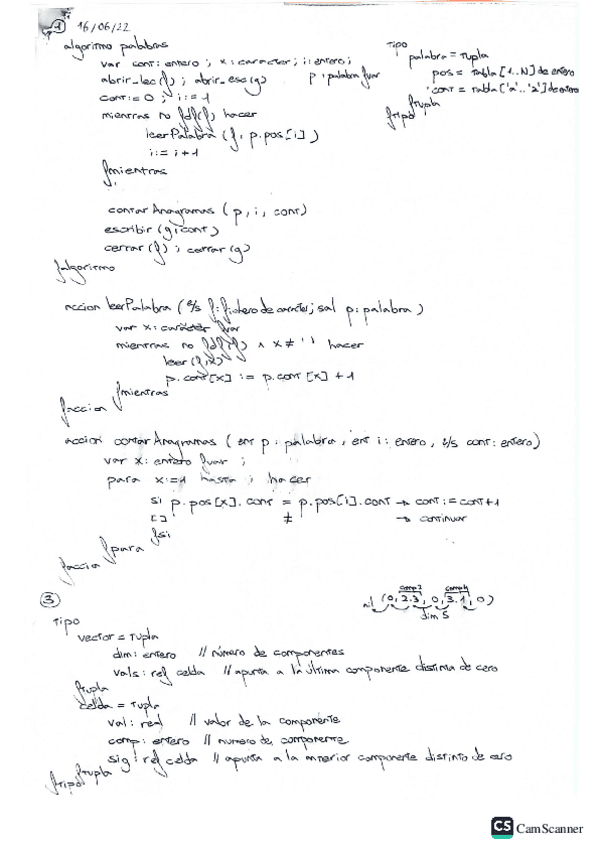 1 16/06/22
algoritmo palabras
var cont: entero ; x: carácter ; i: entero ;
abrir_lec(f) ; abrir_esc(g) p: palabra fvar
cont:= 0 ; i:= 1
mientras no fdf(f) hacer
leerPalabra (f, p.pos[i])
i:= i+1
fmientras
contarAnagramas (p, i, cont)
escribir (g, cont)
cerrar (f) ; cerrar (g)
falgoritmo
tipo
palabra = tupla
pos = tabla [1..N] de entero
cont = tabla ['a'..'z'] de entero
ftupla
ftipo
accion leerPalabra (e/s f: fichero de caracter; sal p: palabra)
var x: carácter fvar
mientras no fdf(f) ∧ x ≠ ' ' hacer
leer (f, x)
p.cont[x] := p.cont[x] + 1
fmientras
faccion
accion contarAnagramas (ent p: palabra, ent i: entero, e/s cont: entero)
var x: entero fvar ;
para x:=1 hasta i hacer
si p.pos[x].cont = p.pos[i].cont → cont := cont+1
[] ≠ → continuar
fsi
fpara
faccion
3
comp2 comp4
(0, 2.3, 0, 3.1, 0)
nil
dim 5
tipo
vector = tupla
dim: entero // número de componentes
vals: ref celda // apunta a la última componente distinta de cero
ftupla
celda = tupla
val: real // valor de la componente
comp: entero // numero de componente
sig: ref celda // apunta a la anterior componente distinto de cero
ftupla
ftipo
CS CamScanner